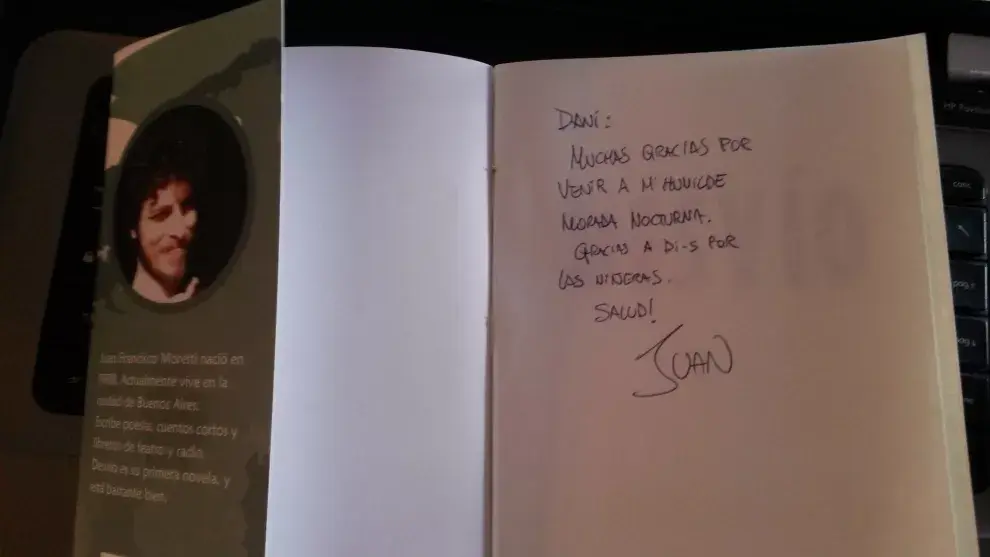 Juan Francisco Moretti nació en
1988. Actualmente vive en la
ciudad de Buenos Aires.
Escribe poesía, cuentos cortos y
libretos de teatro y radio.
Desvío es su primera novela, y
está bastante bien.
DANI:
MUCHAS GRACIAS POR
VENIR A MI HUMILDE
MORADA NOCTURNA.
GRACIAS A DI-S POR
LAS NIÑERAS.
SALUD!
JUAN